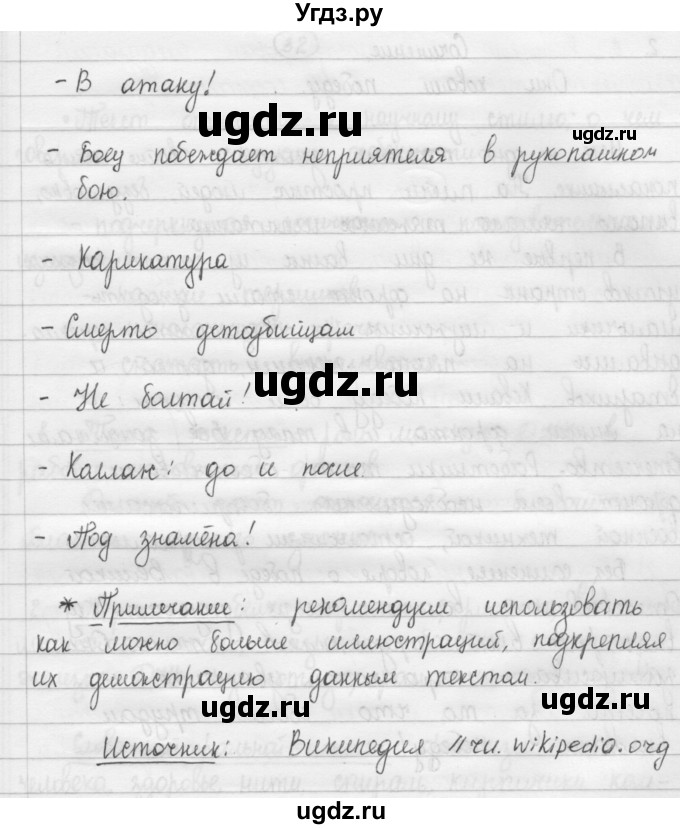 Угдз.ру
- В атаку!
ugdz.ru
ugdz.ru
- Боец побеждает неприятеля в рукопашном
бою.
- Карикатура
ugdz.ru
- Смерть детоубийцам
ugdz.ru
- Не болтай!
- Коллаж: до и после
- Под знамёна!
ugdz.ru
* Примечание: рекомендуем использовать
как можно больше иллюстраций, подкрепляя
их демонстрацию данным текстом.
ugdz.ru
ugdz.ru
Источник: Википедия //ru.wikipedia.org
ugdz.ru
ugdz.ru